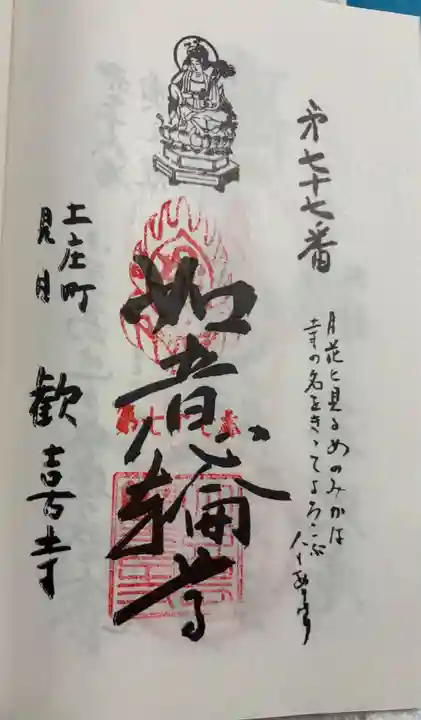 第七十七番
月花と見るめのみかは
寺の名をきゝてよろこぶ
如意輪尊
第七十七番
土庄町
見目
歓喜寺